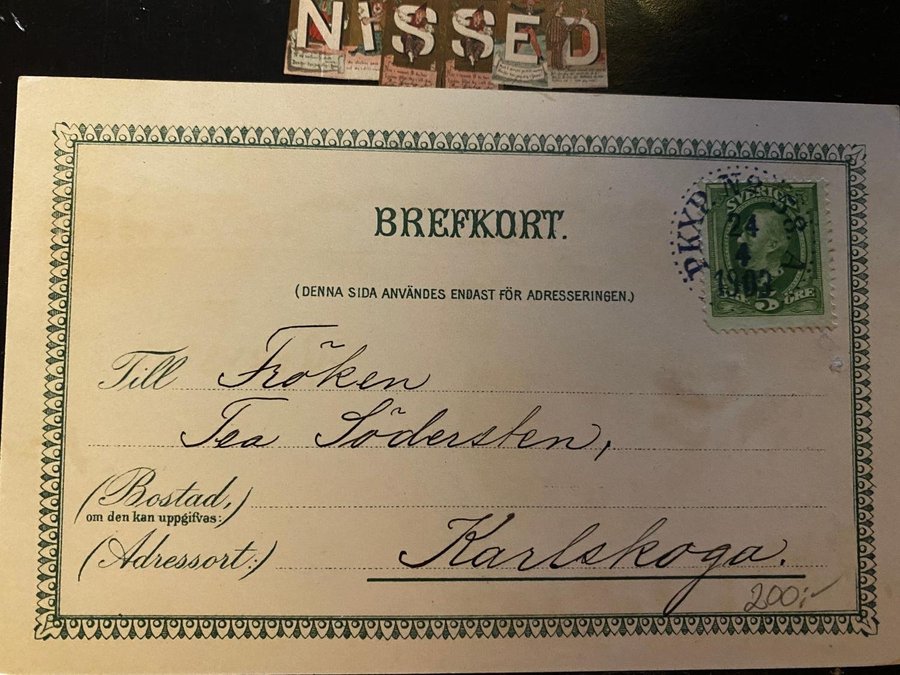 NISSED
BREFKORT.
(DENNA SIDA ANVÄNDES ENDAST FÖR ADRESSERINGEN.)
SVERIGE
24
4
1903
5
ÖRE
Till Fröken
Tea Södersten,
(Bostad,)
om den kan uppgifvas:
(Adressort:) Karlskoga.
200:-